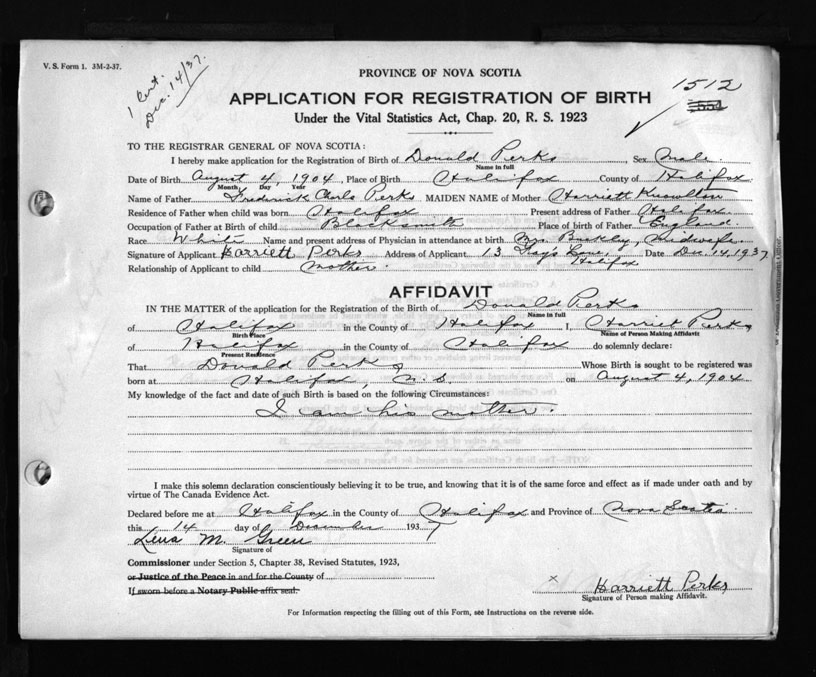 V. S. Form 1. 3M-2-37.
1 Cert.
Dec. 14/37.
PROVINCE OF NOVA SCOTIA
1512
554
APPLICATION FOR REGISTRATION OF BIRTH
Under the Vital Statistics Act, Chap. 20, R. S. 1923
TO THE REGISTRAR GENERAL OF NOVA SCOTIA:
I hereby make application for the Registration of Birth of Donald Perks Sex Male
Name in full
Date of Birth August 4, 1904, Place of Birth Halifax County of Halifax
Month Day Year
Name of Father Frederick Charls Perks MAIDEN NAME of Mother Harriett Knowlton
Residence of Father when child was born Halifax Present address of Father Halifax
Occupation of Father at Birth of child Blacksmith Place of birth of Father England.
Race White Name and present address of Physician in attendance at birth Mrs. Buckley, Midwife.
Signature of Applicant Harriett Perks Address of Applicant 13 Lane, Halifax Date Dec. 14, 1937
Relationship of Applicant to child mother.
AFFIDAVIT
IN THE MATTER of the application for the Registration of the Birth of Donald Perks
Name in full
of Halifax in the County of Halifax I, Harriet Perks
Birth Place Name of Person Making Affidavit
of Halifax in the County of Halifax do solemnly declare:
Present Residence
That Donald Perks Whose Birth is sought to be registered was
born at Halifax, N.S. on August 4, 1904
My knowledge of the fact and date of such Birth is based on the following Circumstances:
I am his mother.
I make this solemn declaration conscientiously believing it to be true, and knowing that it is of the same force and effect as if made under oath and by
virtue of The Canada Evidence Act.
Declared before me at Halifax in the County of Halifax and Province of Nova Scotia
this 14 day of December 1937
Lena M. Green
Signature of
Commissioner under Section 5, Chapter 38, Revised Statutes, 1923,
or Justice of the Peace in and for the County of
If sworn before a Notary Public affix seal.
x Harriett Perks
Signature of Person making Affidavit.
For Information respecting the filling out of this Form, see Instructions on the reverse side.